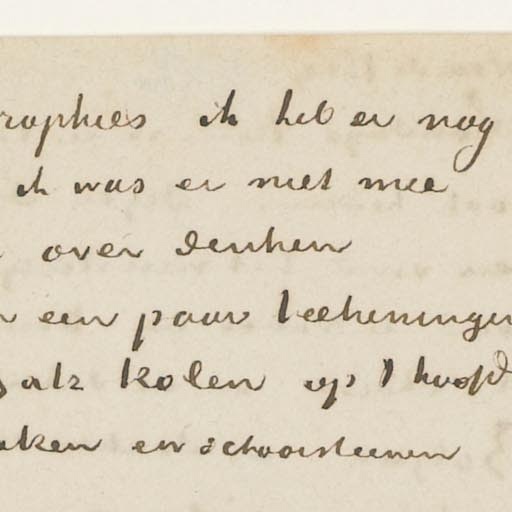 raphies ik heb er nog
ik was er niet mee
over denken
een paar teekeningen
zak kolen op 't hoofd
aken en schoorsteenen